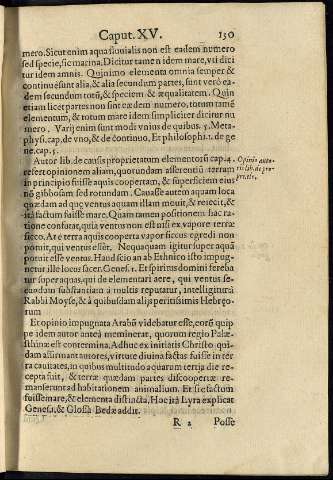 Caput. XV. 130
mero. Sicut enim aqua fluuialis non est eadem numero
sed specie, sic marina. Dicitur tamen idem mare, vti dici
tur idem amnis. Quinimo elementa omnia semper &
continue sunt alia, & alia secundum partes, sunt verò ea-
dem secundum totũ, & speciem & æqualitatem. Quin
etiam licet partes non sint eædem numero, totum tamẽ
elementum, & totum mare idem simpliciter dicitur nu
mero. Varij enim sunt modi vnius de quibus. 5. Meta-
phys. cap. de vno, & de continuo, Et philosophi. 1. de ge
ne. cap. 5.
Autor lib. de causis proprietatum elementorũ cap. 4.
refert opinionem aliam, quorundam asserentiũ terram
in principio fuisse aquis coopertam, & superficiem eius
nõ gibbosam sed rotundam. Cauasse autem aquam loca
quædam ad quę ventus aquam illam mouit, & reiecit, &
ità factum fuisse mare. Quam tamen positionem hac ra-
tione confutat, quia ventus non est nisi ex vapore terræ
sicco. At è terra aquis cooperta vapor siccus egredi non
potuit, qui ventus esset. Nequaquam igitur super aquã
potuit esse ventus. Haud scio an ab Ethnico isto impug-
netur ille locus sacer. Genes. 1. Et spiritus domini fereba
tur super aquas, qui de elementari aere, qui ventus se-
cundum substantiam à multis reputatur, intelligitur à
Rabbi Moyse, & à quibusdam alijs peritissimis Hebręo-
rum
Et opinio impugnata Arabũ videbatur esse, eorũ quip
pe idem autor anteà meminerat, quorum regio Palæ-
sthinæ est contermina. Adhuc ex initiatis Christo qui-
dam affirmant autores, virtute diuina factas fuisse in ter
ra cauitates, in quibus multitudo aquarum tertia die re-
cepta fuit, & terræ quædam partes discoopertæ re-
manserunt ad habitationem animalium. Et sic factum
fuisse mare, & elementa distincta. Hoc ità Lyra explicat
Genes. 1, & Glossa Bedæ addit.
R 2 Posse
Opinio auto-
ris lib. de pro-